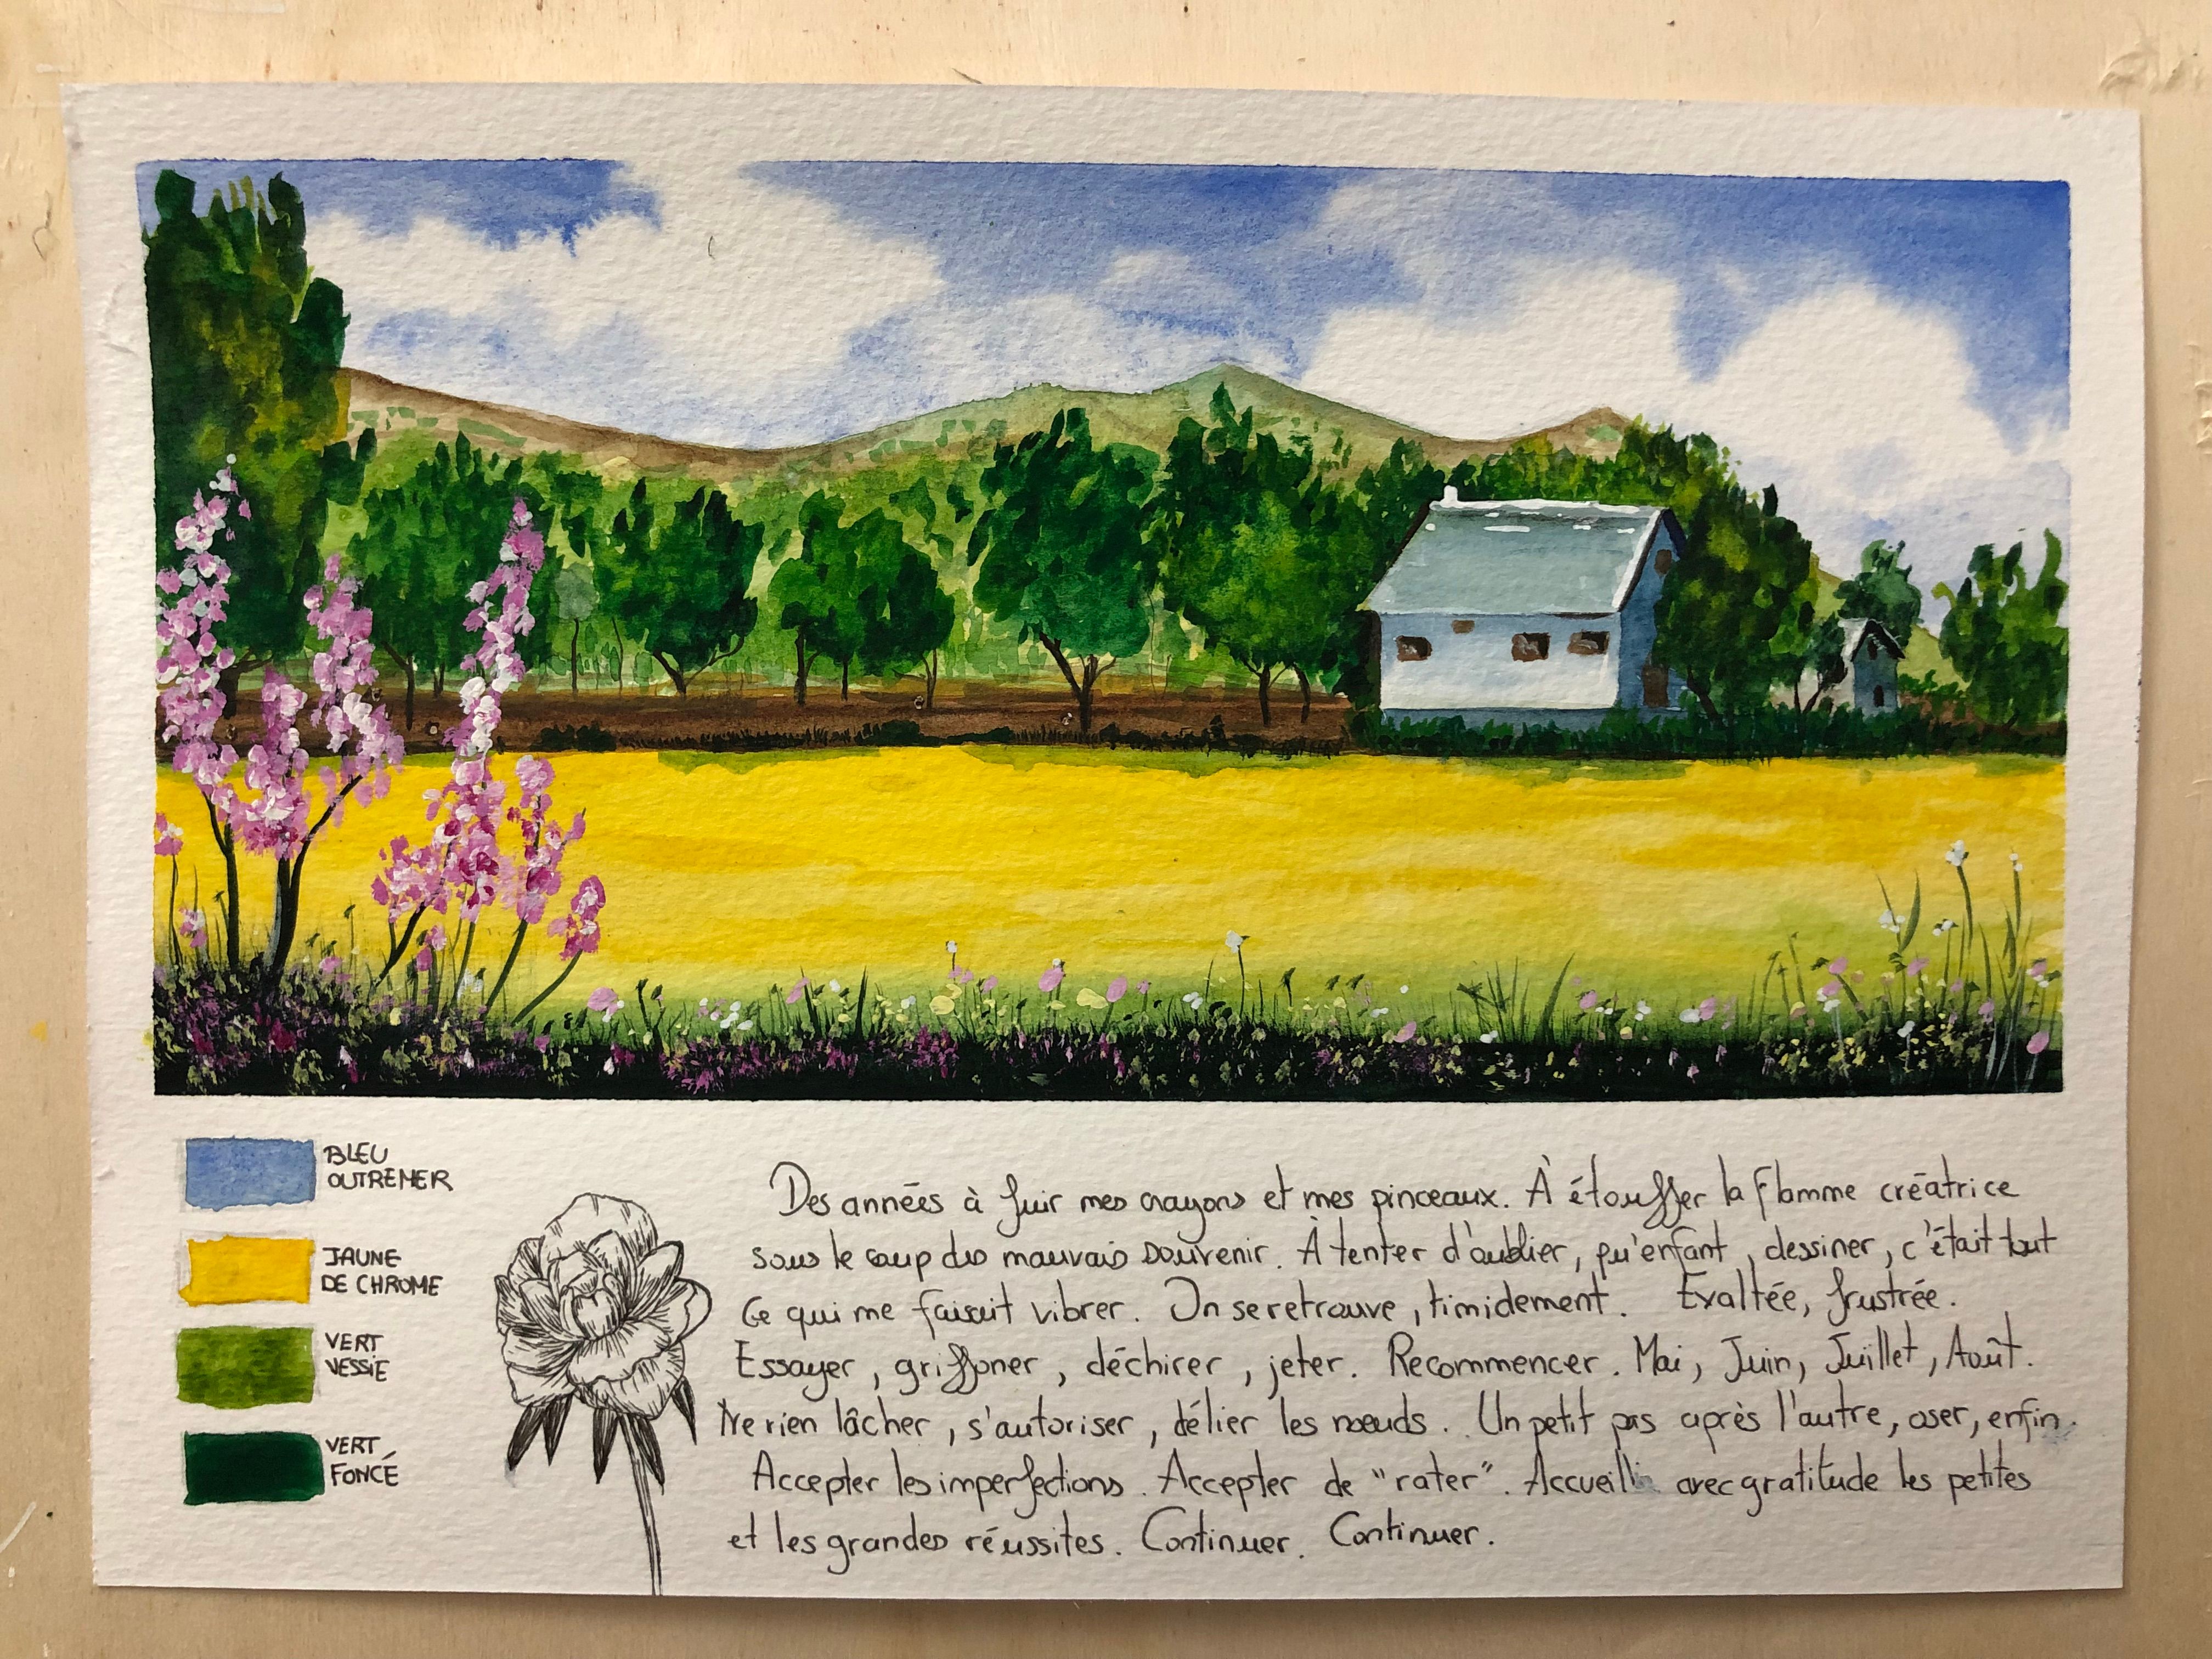 BLEU
OUTREMER
JAUNE
DE CHROME
VERT
VESSIE
VERT
FONCÉ
Des années à fuir mes crayons et mes pinceaux. À étouffer la flamme créatrice
sous le coup du mauvais souvenir. À tenter d'oublier, qu'enfant, dessiner, c'était tout
ce qui me faisait vibrer. On se retrouve, timidement. Exaltée, frustrée.
Essayer, griffoner, déchirer, jeter. Recommencer. Mai, Juin, Juillet, Août.
Ne rien lâcher, s'autoriser, délier les nœuds. Un petit pas après l'autre, oser, enfin.
Accepter les imperfections. Accepter de "rater". avec gratitude les petites
et les grandes réussites. Continuer. Continuer.